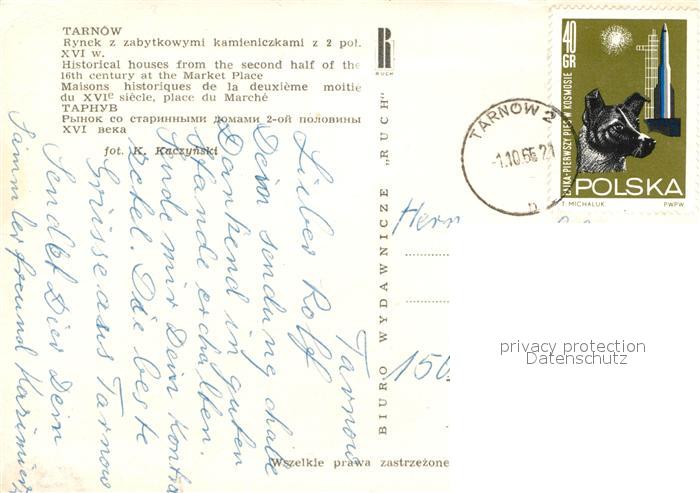 TARNÓW
Rynek z zabytkowymi kamieniczkami z 2 poł.
XVI w.
Historical houses from the second half of the
16th century at the Market Place
Maisons historiques de la deuxième moitie
du XVIe siècle, place du Marché
ТАРНУВ
Рынок со старинными домами 2-ой половины
XVI века
fot. K. Kaczyński
RUCH
BIURO WYDAWNICZE „RUCH"
Wszelkie prawa zastrzeżone
TARNÓW 2
-1.10.66 21
40 GR
ŁAJKA-PIERWSZY PIES W KOSMOSIE
POLSKA
T. MICHALUK PWPW
Tarnow
Lieber Rolf
Dein sendung habe
Dankend in guten
stande erhalten.
Sende mir Dein Konta
zetel. Die beste
Grüsse aus Tarnow
Sendet Dier Dein
Sammlerfreund Kazimierz
Herrn
150
privacy protection
Datenschutz